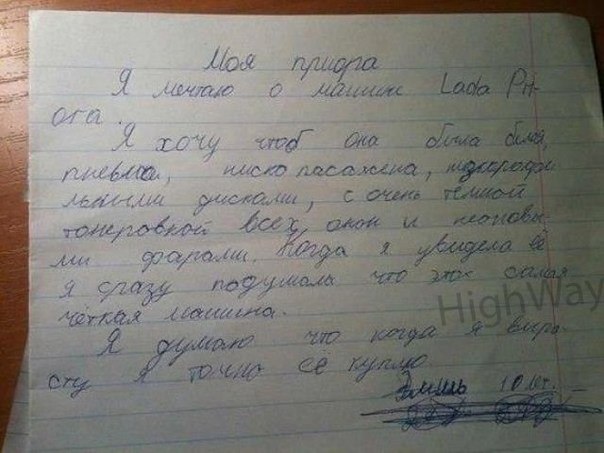 Моя приора
Я мечтаю о машине Lada Pri-
ora.
Я хочу чтоб она была белая,
пневма, ниско пасажена,
льными дисками, с очень тёмной
тонеровкой всех окон и неоновы-
ми фарами. Когда я увидела её
я сразу подумала что это самая
чёткая машина.
Я думаю что когда я выра-
сту я точно её куплю
10 лет.
HighWay